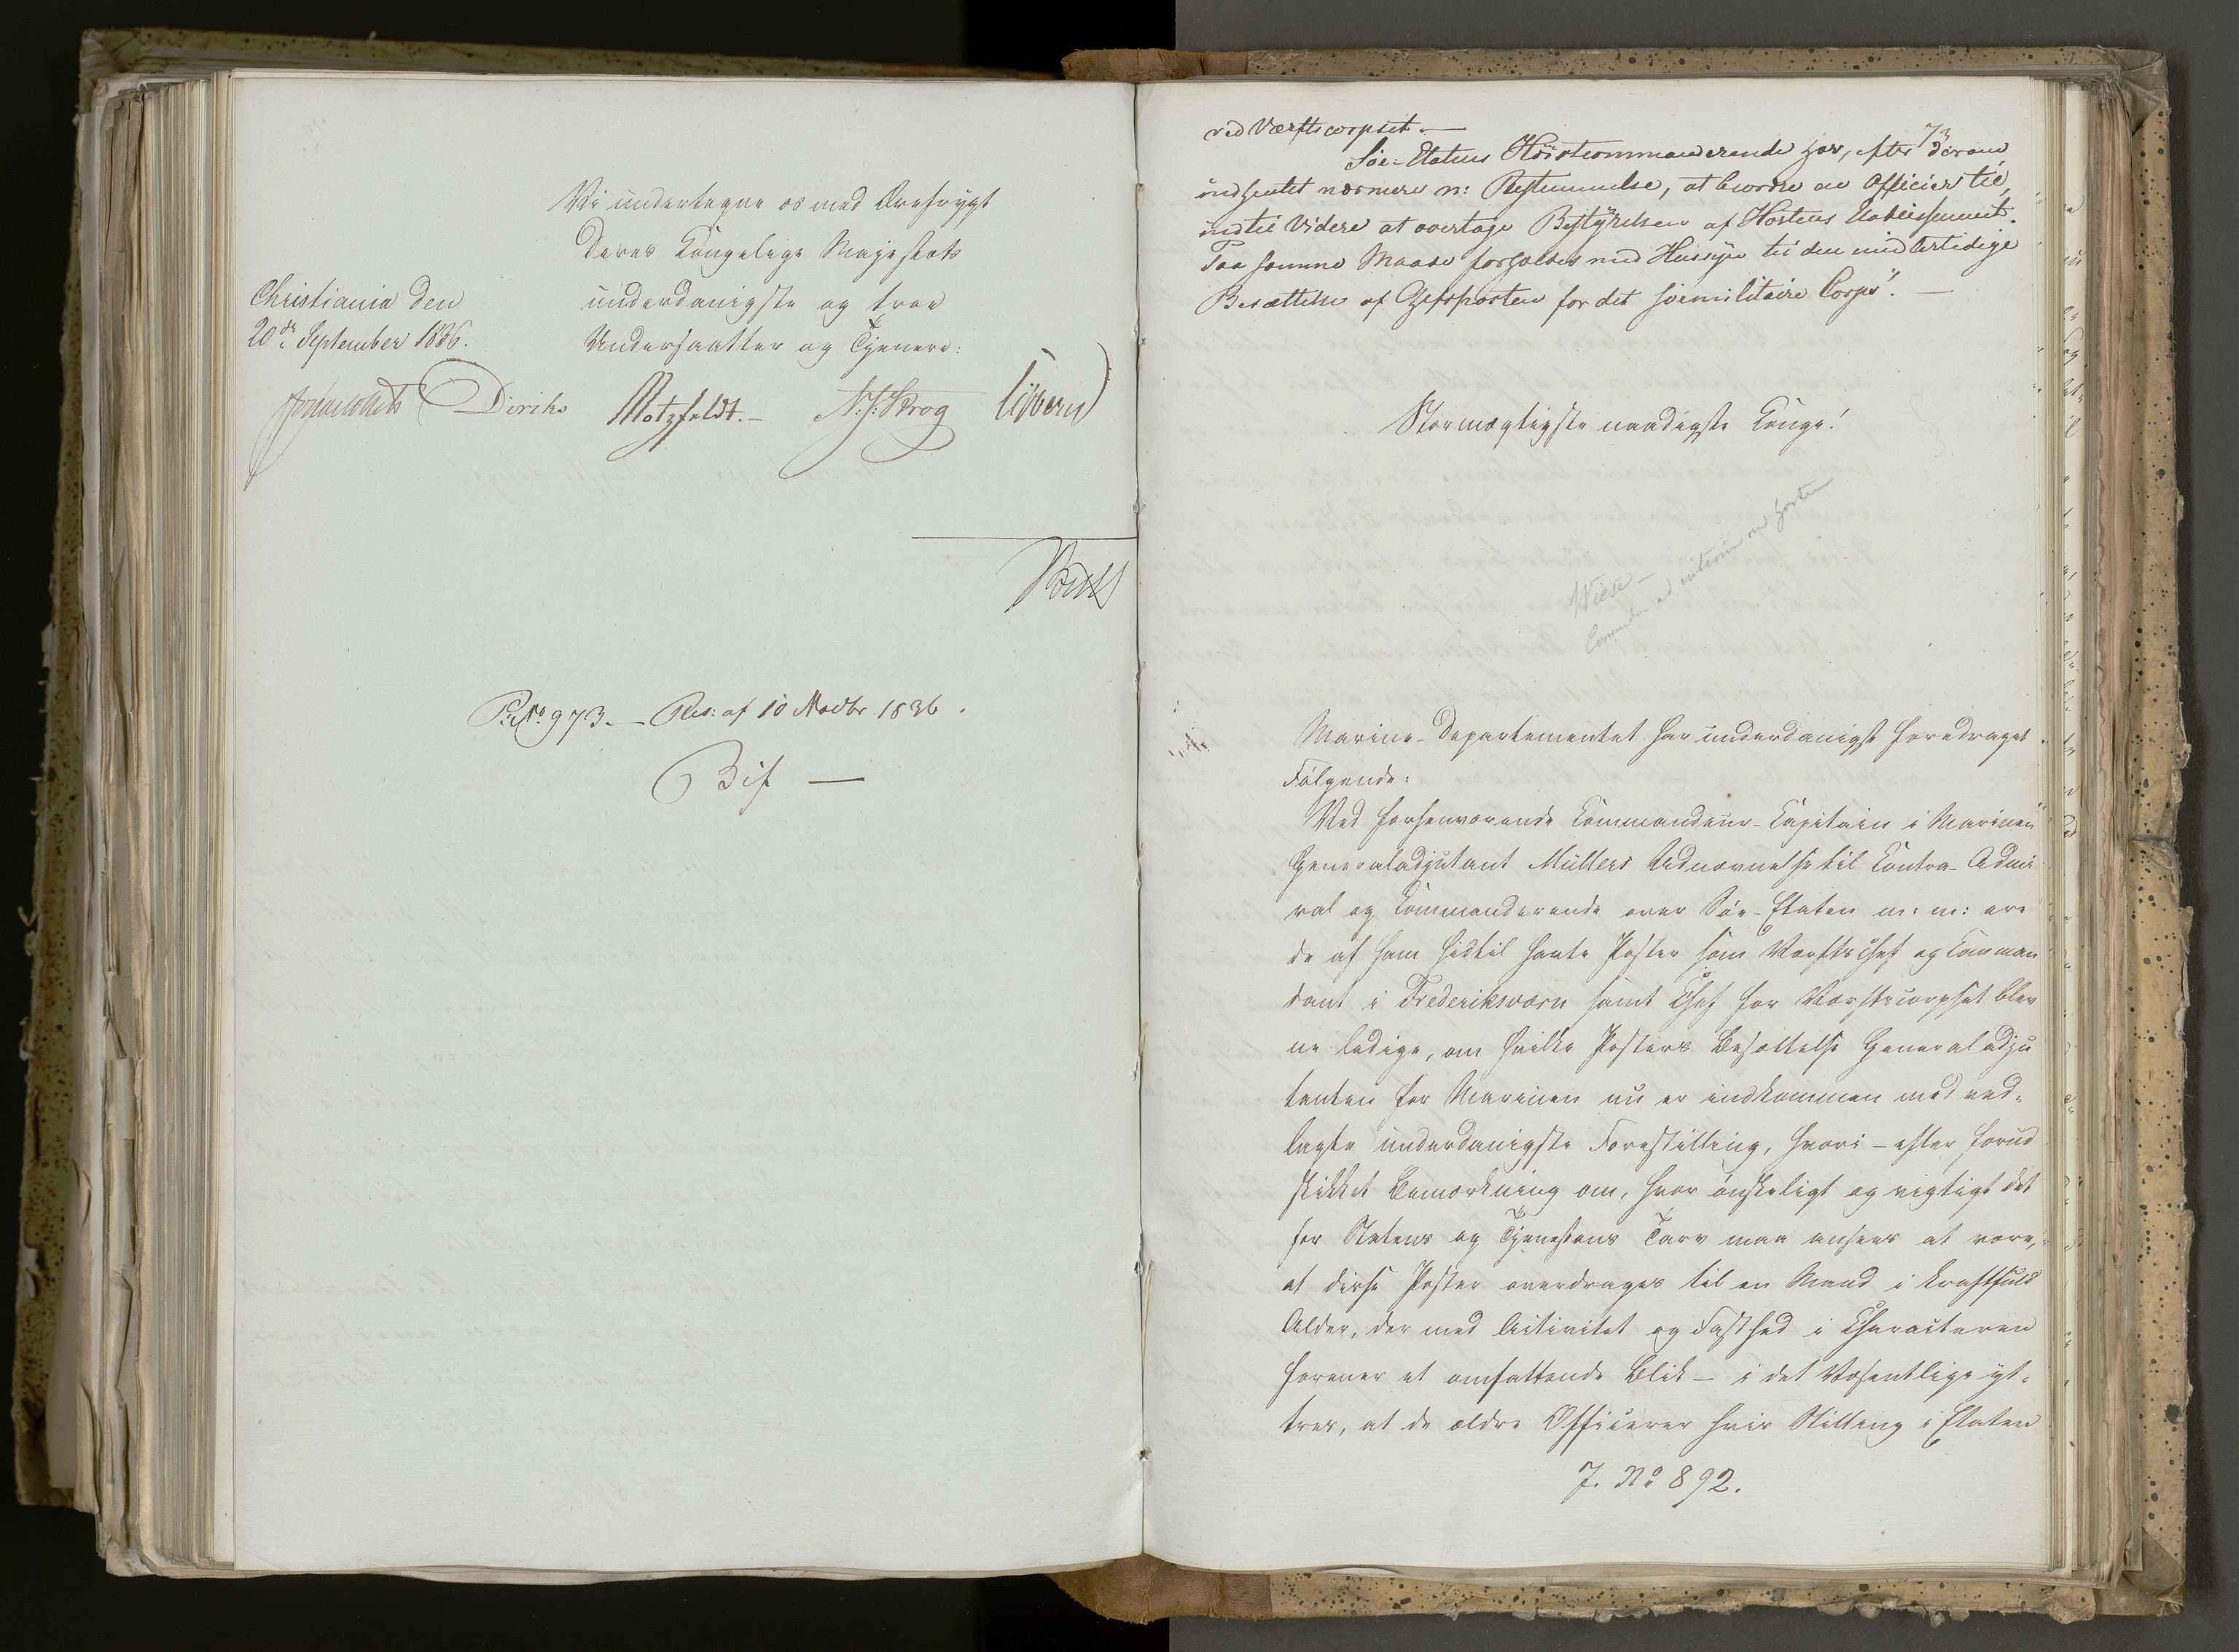 Vi undertegne os med Ærefrygt
Deres Kongelige Majestæts
Christiania den
20de September 1836.
underdanigste og troe
Undersaatter og Tjenere:
Diriks Motzfeldt. N. J. Krog Sibbern
P: No 973. — Res: af 10 Novbr 1836.
Bif —
73
ved Værftscorpset. —
Söe-Etatens Höistcommanderende har, efter derom
indhentet nærmere n: Bestemmelse, at beordre en Officier til,
indtil Videre at overtage Bestÿrelsen af Hortens Etablissement.
Paa samme Maade forholdes med Hensyn til den midlertidige
Besættelse af Chefsposten for det söemilitaire Corps". —
Stormægtigste naadigste Konge!
Wiese —
ad interim Horten
Marine-Departementet har underdanigst foredraget
Følgende:
Ved forhenværende Kommandeur-Kapitain i Marinen
Generaladjutant Müllers Udnævnelse til Contra-Admi
ral og Kommanderende over Søe-Etaten m: m: ere
de af ham hidtil havte Poster som Værftschef og Komman
dant i Frederiksværn samt Chef for Værftscorpset blev
ne ledige, om hvilke Posters Besættelse Generaladju
tanten for Marinen nu er indkommen med ved-
lagte underdanigste Forestilling, hvori — efter forud
skikket Bemærkning om, hvor ønskeligt og vigtigt det
for Statens og Tjenestens Tarv maa ansees at være,
at disse Poster overdrages til en Mand i kraftfuld
Alder, der med Activitet og Fasthed i Characteren
forener et omfattende Blik — i det Væsentlige yt-
tres, at de ældre Officerer hvis Stilling i Etaten
J. No 892.